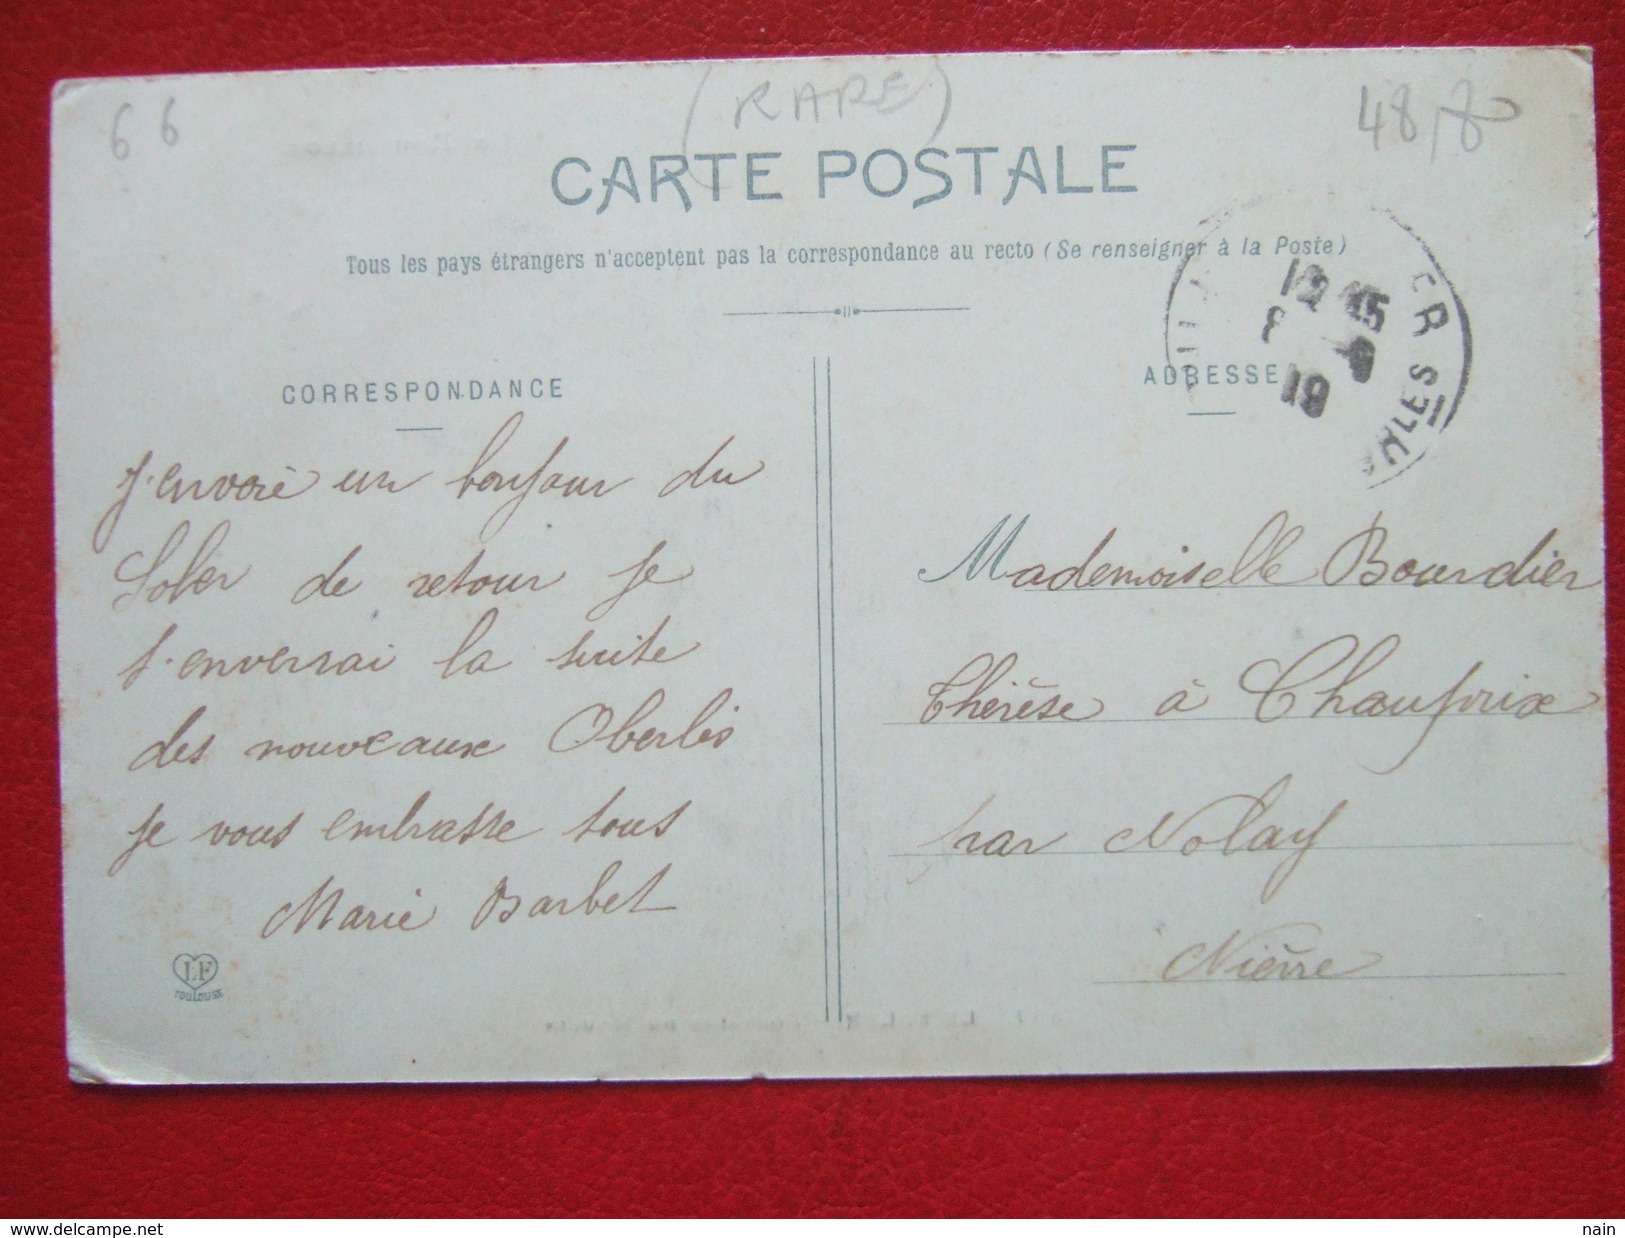 66
(RARE)
48,8
CARTE POSTALE
Tous les pays étrangers n'acceptent pas la correspondance au recto (Se renseigner à la Poste)
CORRESPONDANCE
J'envoie un bonjour du
Soler de retour je
t'enverrai la suite
des nouveaux Oberlès
je vous embrasse tous
Marie Barbet
LF
TOULOUSE
ADRESSE
Mademoiselle Bourdier
Thérèse à Chauprix
par Nolay
Nièvre
www.delcampe.net
nain